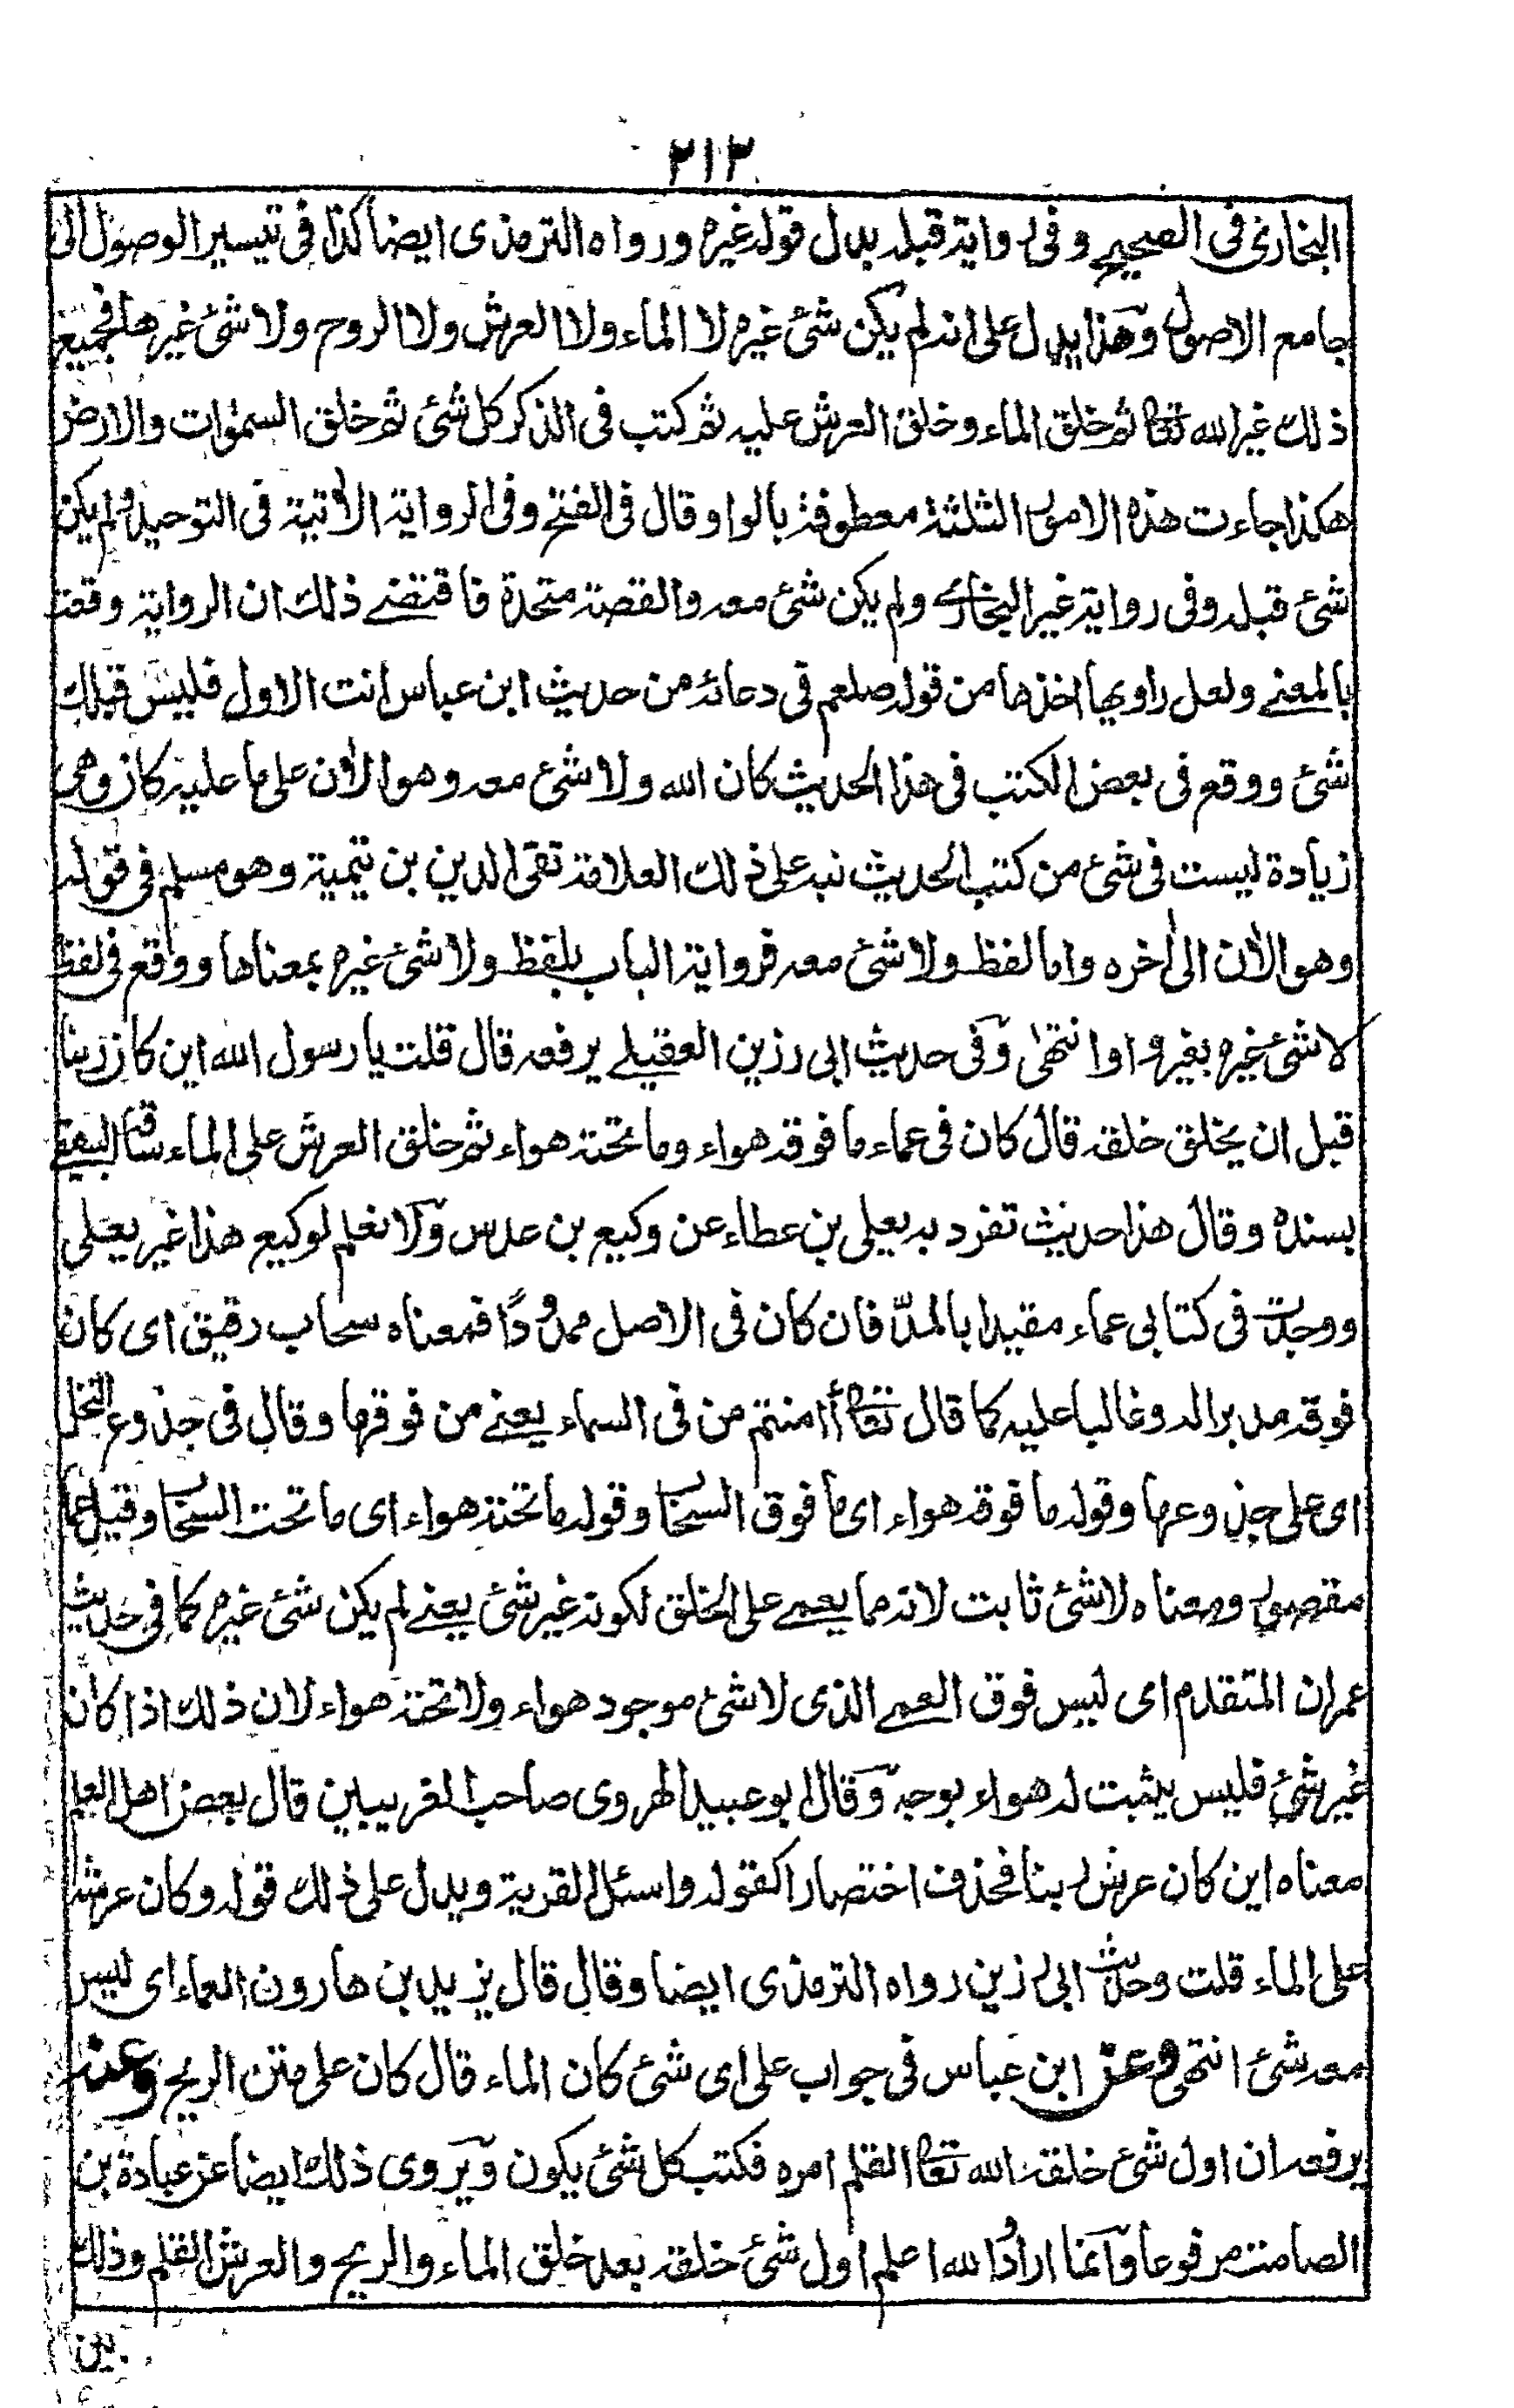 ٢١٣
البخاری فی الصحیح وفی روایة قبله بدل قوله غیره ورواه الترمذی ایضا کذا فی تیسیر الوصول الی
جامع الاصول وهذا یدل علی انه لم یکن شئ غیره لا الماء ولا العرش ولا الروح ولا شئ غیرها فجمیع
ذلک غیر الله تعا ثم خلق الماء وخلق العرش علیه ثم کتب فی الذکر کل شئ ثم خلق السمٰوات والارض
هکذا جاءت هذه الامور الثلثة معطوفة بالواو قال فی الفتح وفی الروایة الاٰتیة فی التوحید ولم یکن
شئ قبله وفی روایة غیر البخاری ولم یکن شئ معه والقصة متحدة فاقتضے ذلک ان الروایة وقعت
بالمعنے ولعل راویها اخذها من قوله صلعم فی دعائه من حدیث ابن عباس انت الاول فلیس قبلک
شئ ووقع فی بعض الکتب فی هذا الحدیث کان الله ولا شئ معه وهو الاٰن علی ما علیه کان وهی
زیادة لیست فی شئ من کتب الحدیث نبه علی ذلک العلامة تقی الدین بن تیمیة وهو مسلم فی قوله
وهو الاٰن الی اٰخره واما لفظ ولا شئ معه فروایة الباب بلفظ ولا شئ غیره بمعناها ووقع فی لفظ
لا شئ غیره بغیر واو انتهٰی وفی حدیث ابی رزین العقیلے یرفعه قال قلت یا رسول الله این کان ربنا
قبل ان یخلق خلقه قال کان فی عماء ما فوقه هواء وما تحته هواء ثم خلق العرش علی الماء ساقه البیهقے
بسنده وقال هذا حدیث تفرد به یعلی بن عطاء عن وکیع بن عدس ولا نعلم لوکیع هذا غیر یعلی
ووجدت فی کتابی عماء مقیدا بالمدّ فان کان فی الاصل ممدودًا فمعناه سحاب رقیق ای کان
فوقه مدبرا له وغالبا علیه کما قال تعا أامنتم من فی السماء یعنے من فوقها وقال فی جذوع النخل
ای علی جذوعها وقوله ما فوقه هواء ای ما فوق السحا وقوله ما تحته هواء ای ما تحت السحا وقیل عما
مقصور ومعناه لا شئ ثابت لانه مما یعمے علی الخلق لکونه غیر شئ یعنے لم یکن شئ غیره کما فی حدیث
عمران المتقدم ای لیس فوق العمے الذی لا شئ موجود هواء ولا تحته هواء لان ذلک اذا کان
غیر شئ فلیس یثبت له هواء بوجه وقال ابو عبید الهروی صاحب الغریبین قال بعض اهل العلم
معناه این کان عرش ربنا فحذف اختصارا کقوله واسئل القریة ویدل علی ذلک قوله وکان عرشه
علی الماء قلت وحدیث ابی رزین رواه الترمذی ایضا وقال قال یزید بن هارون العماء ای لیس
معه شئ انتهی وعن ابن عباس فی جواب علی ای شئ کان الماء قال کان علی متن الریح وعنه
یرفعه ان اول شئ خلقه الله تعا القلم امره فکتب کل شئ یکون ویروی ذلک ایضا عن عبادة بن
الصامت مرفوعا وانما اراد والله اعلم اول شئ خلقه بعد خلق الماء والریح والعرش القلم وذلک
بین